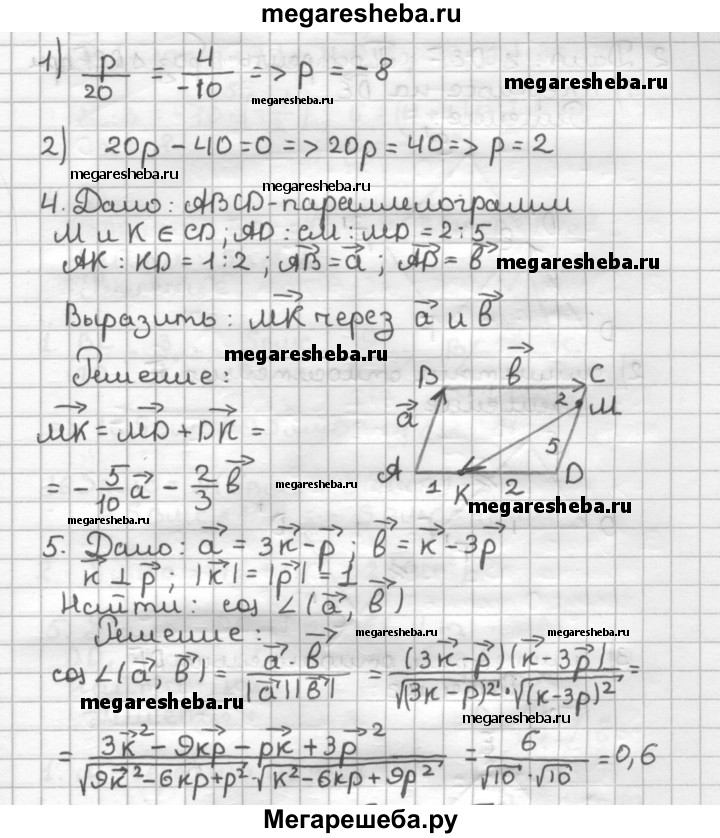 megaresheba.ru
1) p/20 = 4/-10 => p = -8
megaresheba.ru
megaresheba.ru
2) 20p - 40 = 0 => 20p = 40 => p = 2
megaresheba.ru
megaresheba.ru
4. Дано: ABCD - параллелограмм
M и K ∈ CD; AD: CM : MD = 2 : 5
AK : KD = 1 : 2 ; AB⃗ = a⃗ ; AD⃗ = b⃗
megaresheba.ru
Выразить: MK⃗ через a⃗ и b⃗
megaresheba.ru
Решение:
B b⃗ C
a⃗ 2 M
5
A 1 K 2 D
MK⃗ = MD⃗ + DK⃗ =
= - 5/10 a⃗ - 2/3 b⃗
megaresheba.ru
megaresheba.ru
megaresheba.ru
5. Дано: a⃗ = 3k⃗ - p⃗ ; b⃗ = k⃗ - 3p⃗
k⃗ ⊥ p⃗ ; |k⃗| = |p⃗| = 1
Найти: cos ∠(a⃗, b⃗)
Решение:
megaresheba.ru
megaresheba.ru
cos ∠(a⃗, b⃗) = a⃗ · b⃗ / |a⃗||b⃗| = (3k⃗ - p⃗)(k⃗ - 3p⃗) / √(3k - p)² · √(k - 3p)² =
megaresheba.ru
megaresheba.ru
= 3k⃗² - 9kp⃗ - pk⃗ + 3p⃗² / √9k⃗² - 6kp + p² · √k² - 6kp + 9p² = 6 / √10 · √10 = 0,6
Мегарешеба.ру